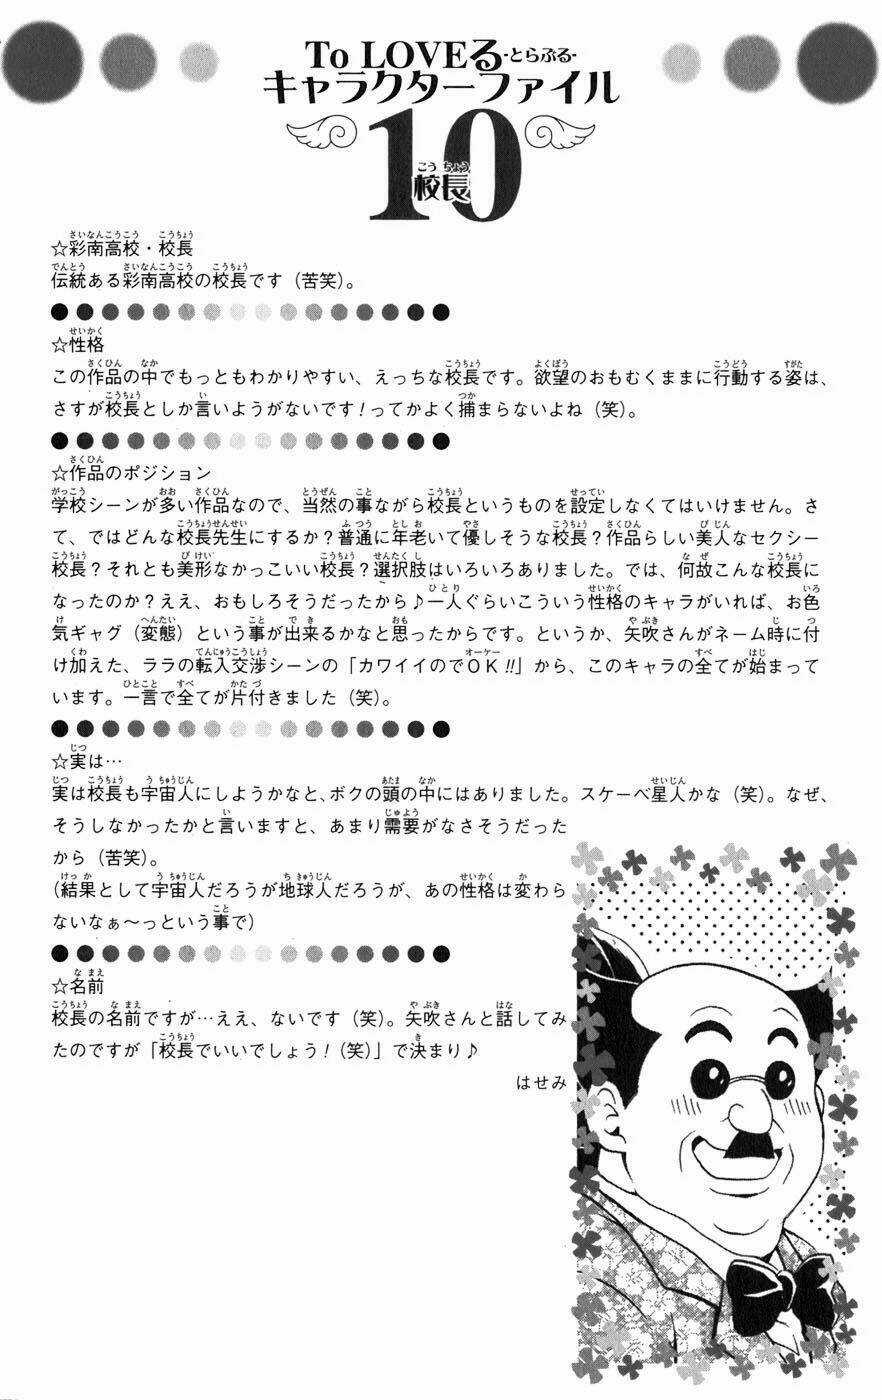 To LOVEる-とらぶる-
キャラクターファイル
10
校長
☆彩南高校・校長
伝統ある彩南高校の校長です（苦笑）。
☆性格
この作品の中でもっともわかりやすい、えっちな校長です。欲望のおもむくままに行動する姿は、
さすが校長としか言いようがないです！ってかよく捕まらないよね（笑）。
☆作品のポジション
学校シーンが多い作品なので、当然の事ながら校長というものを設定しなくてはいけません。さ
て、ではどんな校長先生にするか？普通に年老いて優しそうな校長？作品らしい美人なセクシー
校長？それとも美形なかっこいい校長？選択肢はいろいろありました。では、何故こんな校長に
なったのか？ええ、おもしろそうだったから♪一人ぐらいこういう性格のキャラがいれば、お色
気ギャグ（変態）という事が出来るかなと思ったからです。というか、矢吹さんがネーム時に付
け加えた、ララの転入交渉シーンの「カワイイのでＯＫ!!」から、このキャラの全てが始まって
います。一言で全てが片付きました（笑）。
☆実は…
実は校長も宇宙人にしようかなと、ボクの頭の中にはありました。スケーベ星人かな（笑）。なぜ、
そうしなかったかと言いますと、あまり需要がなさそうだった
から（苦笑）。
（結果として宇宙人だろうが地球人だろうが、あの性格は変わら
ないなぁ〜っという事で）
☆名前
校長の名前ですが…ええ、ないです（笑）。矢吹さんと話してみ
たのですが「校長でいいでしょう！（笑）」で決まり♪
はせみ